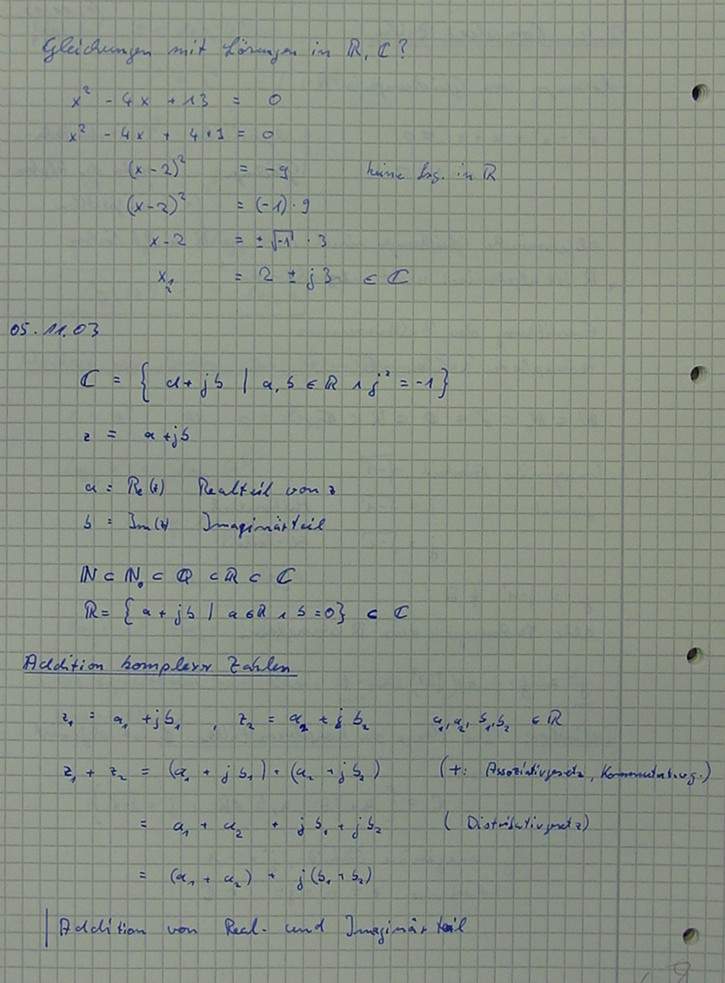 Gleichungen mit Lösungen in ℝ, ℂ?
x² - 4x + 13 = 0
x² - 4x + 4+9 = 0
(x-2)² = -9 keine Lsg. in ℝ
(x-2)² = (-1)·9
x-2 = ±√-1 · 3
x₁₂ = 2 ± j3 ∈ ℂ
05.11.03
ℂ = { a+jb | a, b ∈ ℝ ∧ j² = -1 }
z = a+jb
a = Re(z) Realteil von z
b = Im(z) Imaginärteil
ℕ ⊂ ℕ₀ ⊂ ℚ ⊂ ℝ ⊂ ℂ
ℝ = { a + jb | a ∈ ℝ ∧ b = 0 } ⊂ ℂ
Addition komplexer Zahlen
z₁ = a₁ + jb₁ , z₂ = a₂ + jb₂ a₁, a₂, b₁, b₂ ∈ ℝ
z₁ + z₂ = (a₁ + jb₁) + (a₂ + jb₂) (+: Assoziativgesetz, Kommutativg.)
= a₁ + a₂ + jb₁ + jb₂ (Distributivgesetz)
= (a₁ + a₂) + j(b₁ + b₂)
Addition von Real- und Imaginärteil